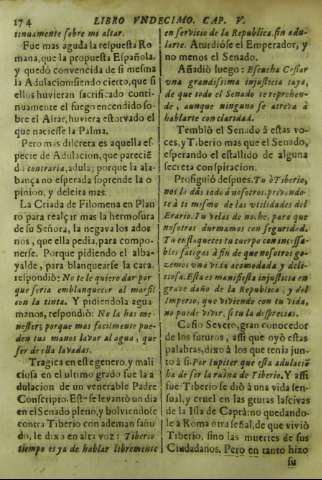 174 LIBRO VNDECIMO. CAP. V.
tinuamente sobre mi altar.
Fue mas aguda la respuesta Ro
mana, que la propuesta Española,
y quedó convencida de si mesma
la Adulacion: siendo cierto, que si
ellos huvieran sacrificado conti-
nuamente el fuego encendido so-
bre el Altar, huviera estorvado el
que naciesse la Palma.
Pero mas discreta es aquella es-
pecie de Adulacion, que pareciẽ
do contraria, adula; porque la ala-
bança no esperada soprende la o
pinion, y deleita mas.
La Criada de Filomena en Plau
to para realçar mas la hermosura
de su Señora, la negava los ador
nos, que ella pedia, para compo-
nerse. Porque pidiendo el alba-
yalde, para blanquearse la cara,
respondiò: No te le quiero dar por
que seria emblanquecer al marfil
con la tinta. Y pidiendola agua
manos, respondiò: No la has me-
nester; porque mas facilmente pue-
den tus manos lavar al agua, que
ser de ella lavadas.
Tragica en este genero, y mali
ciosa en el ultimo grado fue la a
dulacion de un venerable Padre
Conscripto. Este se levantò un dia
en el Senado pleno, y bolviendose
contra Tiberio con ademan sañu
do, le dixo en alta voz: Tiberio
tiempo es ya de hablar libremente
en servicio de la Republica, sin adu-
larte. Aturdiòse el Emperador, y
no menos el Senado.
Añadio luego: Escucha Cesar
una grandissima injusticia tuya,
de que todo el Senado te reprehen-
de, aunque ninguno se atreva à
hablarte con claridad.
Temblò el Senado à estas vo-
ces, y Tiberio mas que el Senado,
esperando el estallido de alguna
secreta conspiracion.
Prosiguiò despues. Tu ò Tiberio,
à ti mismo de las utilidades del
Erario. Tu velas de noche, para que
nosotros durmamos con seguridad.
Tu enflaqueces tu cuerpo con incessa-
bles fatigas à fin de que nosotros go-
cemos una vida acomodada y deli-
ciosa. Esta es manifiesta injusticia en
grave daño de la Republica, y del
Imperio, que viviendo con tu vida,
no puede vivir, si tu la desprecias.
Casio Severo, gran conocedor
de los futuros, assi que oyò estas
palabras, dixo à los que tenia jun-
to à si. Por Jupiter que esta adulacion
ha de ser la ruina de Tiberio. Y assi
fue Tiberio se diò à una vida sen-
sual, y cruel en las grutas lascivas
de la Isla de Capra: no quedando-
le à Roma otra señal, de que vivió
Tiberio, sino las muertes de sus
Ciudadanos. Pero en tanto hizo
su